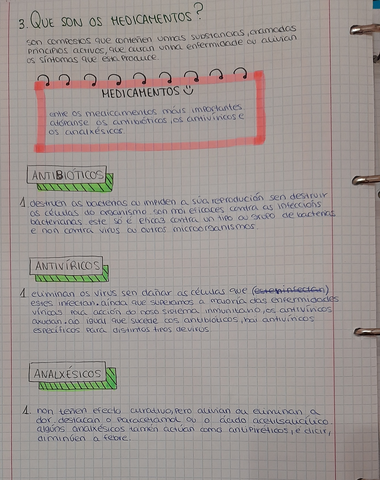 3. QUE SON OS MEDICAMENTOS?
son compostos que conteñen unhas substancias, chamadas
principios activos, que curan unha enfermidade ou alivian
os síntomas que esta produce.
MEDICAMENTOS
entre os medicamentos mais importantes
atópanse os antibióticos, os antivíricos e
os analxésicos.
ANTIBIÓTICOS
1 destrúen as bacterias ou impiden a súa reprodución sen destruír
as células do organismo. son moi eficaces contra as infeccións
bacterianas este só é eficaz contra un tipo ou grupo de bacterias
e non contra virus ou outros microorganismos.
ANTIVÍRICOS
1 eliminan os virus sen dañar as células que
estes infectan, aínda que superamos a maioría das enfermidades
víricas pola acción do noso sistema inmunitario, os antivíricos
axudan, ao igual que sucede cos antibióticos, hai antivíricos
específicos para distintos tipos de virus.
ANALXÉSICOS
1. non teñen efecto curativo, pero alivian ou eliminan a
dor. destacan o paracetamol ou o ácido acetilsalicílico
algúns analxésicos tamén actúan como antipiréticos, é dicir,
diminúen a febre.